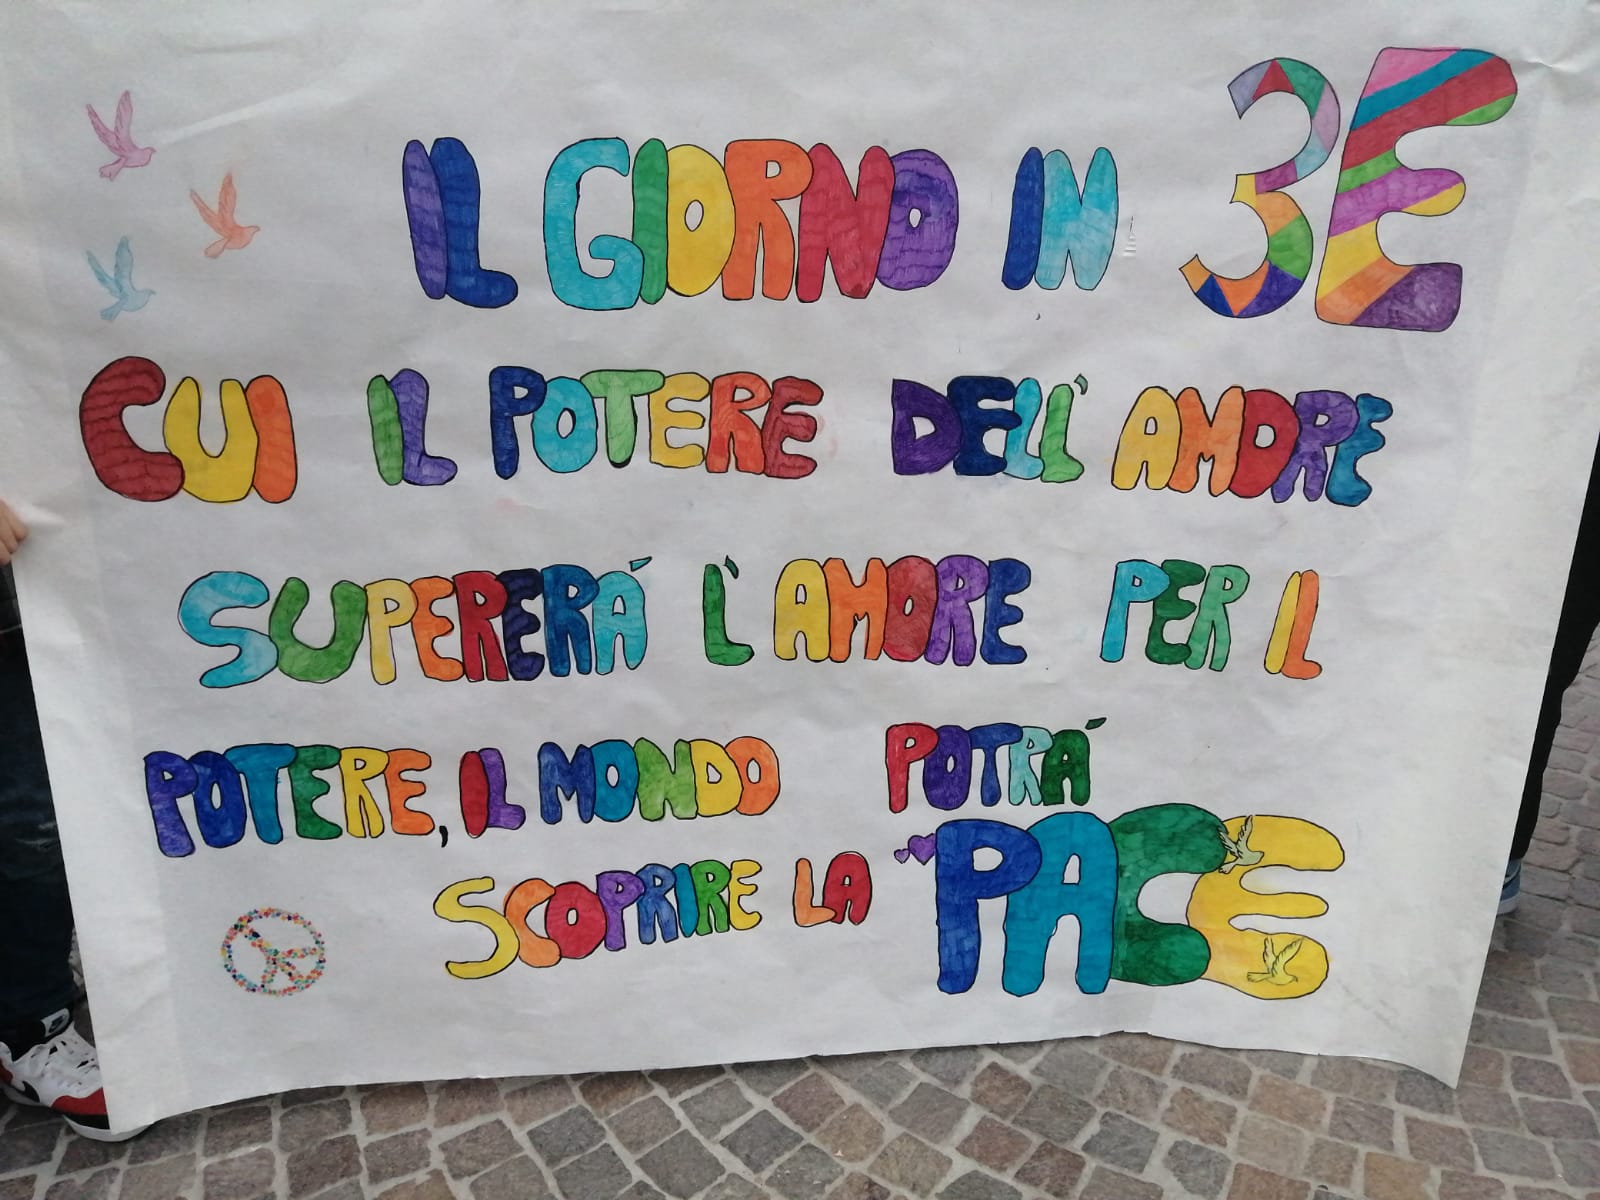 IL GIORNO IN 3E
CUI IL POTERE DELL' AMORE
SUPERERÁ L'AMORE PER IL
POTERE, IL MONDO POTRÁ
SCOPRIRE LA PACE